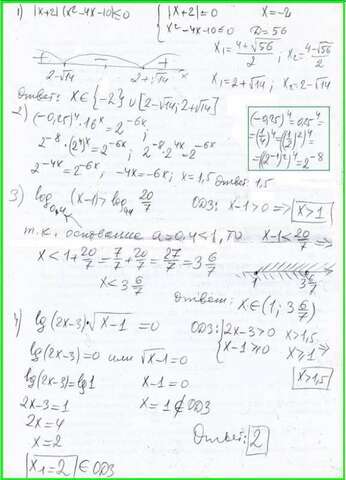 1) |x+2|(x²-4x-10)≤0 { |x+2|=0 x=-2
x²-4x-10≤0 D=56
x₁=(4+√56)/2; x₂=(4-√56)/2
+ - +
2-√14 2+√14 x
x₁=2+√14; x₂=2-√14
Ответ: x∈{-2}∪[2-√14; 2+√14]
2) (-0,25)⁴·16ˣ=2⁻⁶ˣ;
2⁻⁸·(2⁴)ˣ=2⁻⁶ˣ; 2⁻⁸·2⁻⁴ˣ=2⁻⁶ˣ
2⁻⁴ˣ=2⁻⁶ˣ, -4x=-6x; x=1,5 Ответ: 1,5
(-0,25)⁴=0,25⁴=
=(1/4)⁴=((1/2)²)⁴=
=((2⁻¹)²)⁴=2⁻⁸
3) log₀,₄(x-1)>log₀,₄ 20/7 ОДЗ: x-1>0 => x>1
т.к. основание a=0,4<1, то x-1<20/7 =>
x<1+20/7=7/7+20/7=27/7=3 6/7
x<3 6/7
1 3 6/7
Ответ: x∈(1; 3 6/7)
4) lg(2x-3)·√x-1=0 ОДЗ: { 2x-3>0 x>1,5
x-1≥0 x≥1 =>
lg(2x-3)=0 или √x-1=0
x>1,5
lg(2x-3)=lg1 x-1=0
2x-3=1 x=1∉ОДЗ
2x=4
x=2 Ответ: 2
x₁=2 ∈ОДЗ